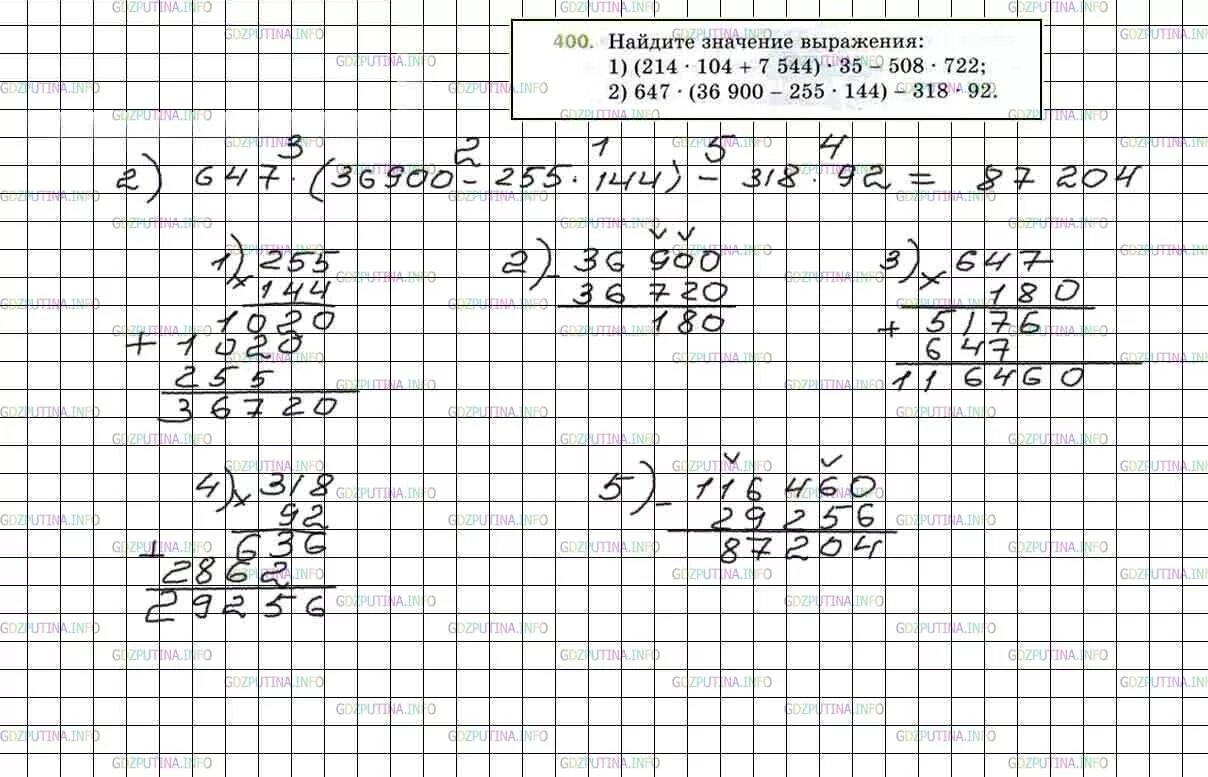 400. Найдите значение выражения:
1) (214 · 104 + 7 544) · 35 – 508 · 722;
2) 647 · (36 900 – 255 · 144) – 318 · 92.
3 2 1 5 4
2) 647 · (36900 - 255 · 144) - 318 · 92 = 87 204
1) × 255
144
1020
+ 1020
255
36720
2) - 36 900
36 720
180
3) × 647
180
+ 5176
647
116460
4) × 318
92
+ 636
2862
29256
5) - 116 460
29 256
87204
GDZPUTINA.INFO